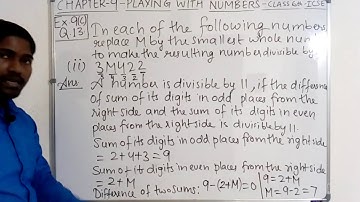 CHAPTER-4-PLAYING WITH NUMBERS-CLASS 6th-ICSE
Ex 9(C) In each of the following numbers,
Q.13) replace M by the smallest whole num
to make the resulting number divisible by
(ii) 3M422
Ans. A number is divisible by 11, if the differe
of sum of its digits in odd places from the
right side and the sum of its digits in even
places from the right side is divisible by 11.
Sum of its digits in odd places from the right side
= 2+4+3=9
Sum of its digits in even places from the right side
= 2+M
Difference of two sums: 9-(2+M)=0 9=2+M
M=9-2=7